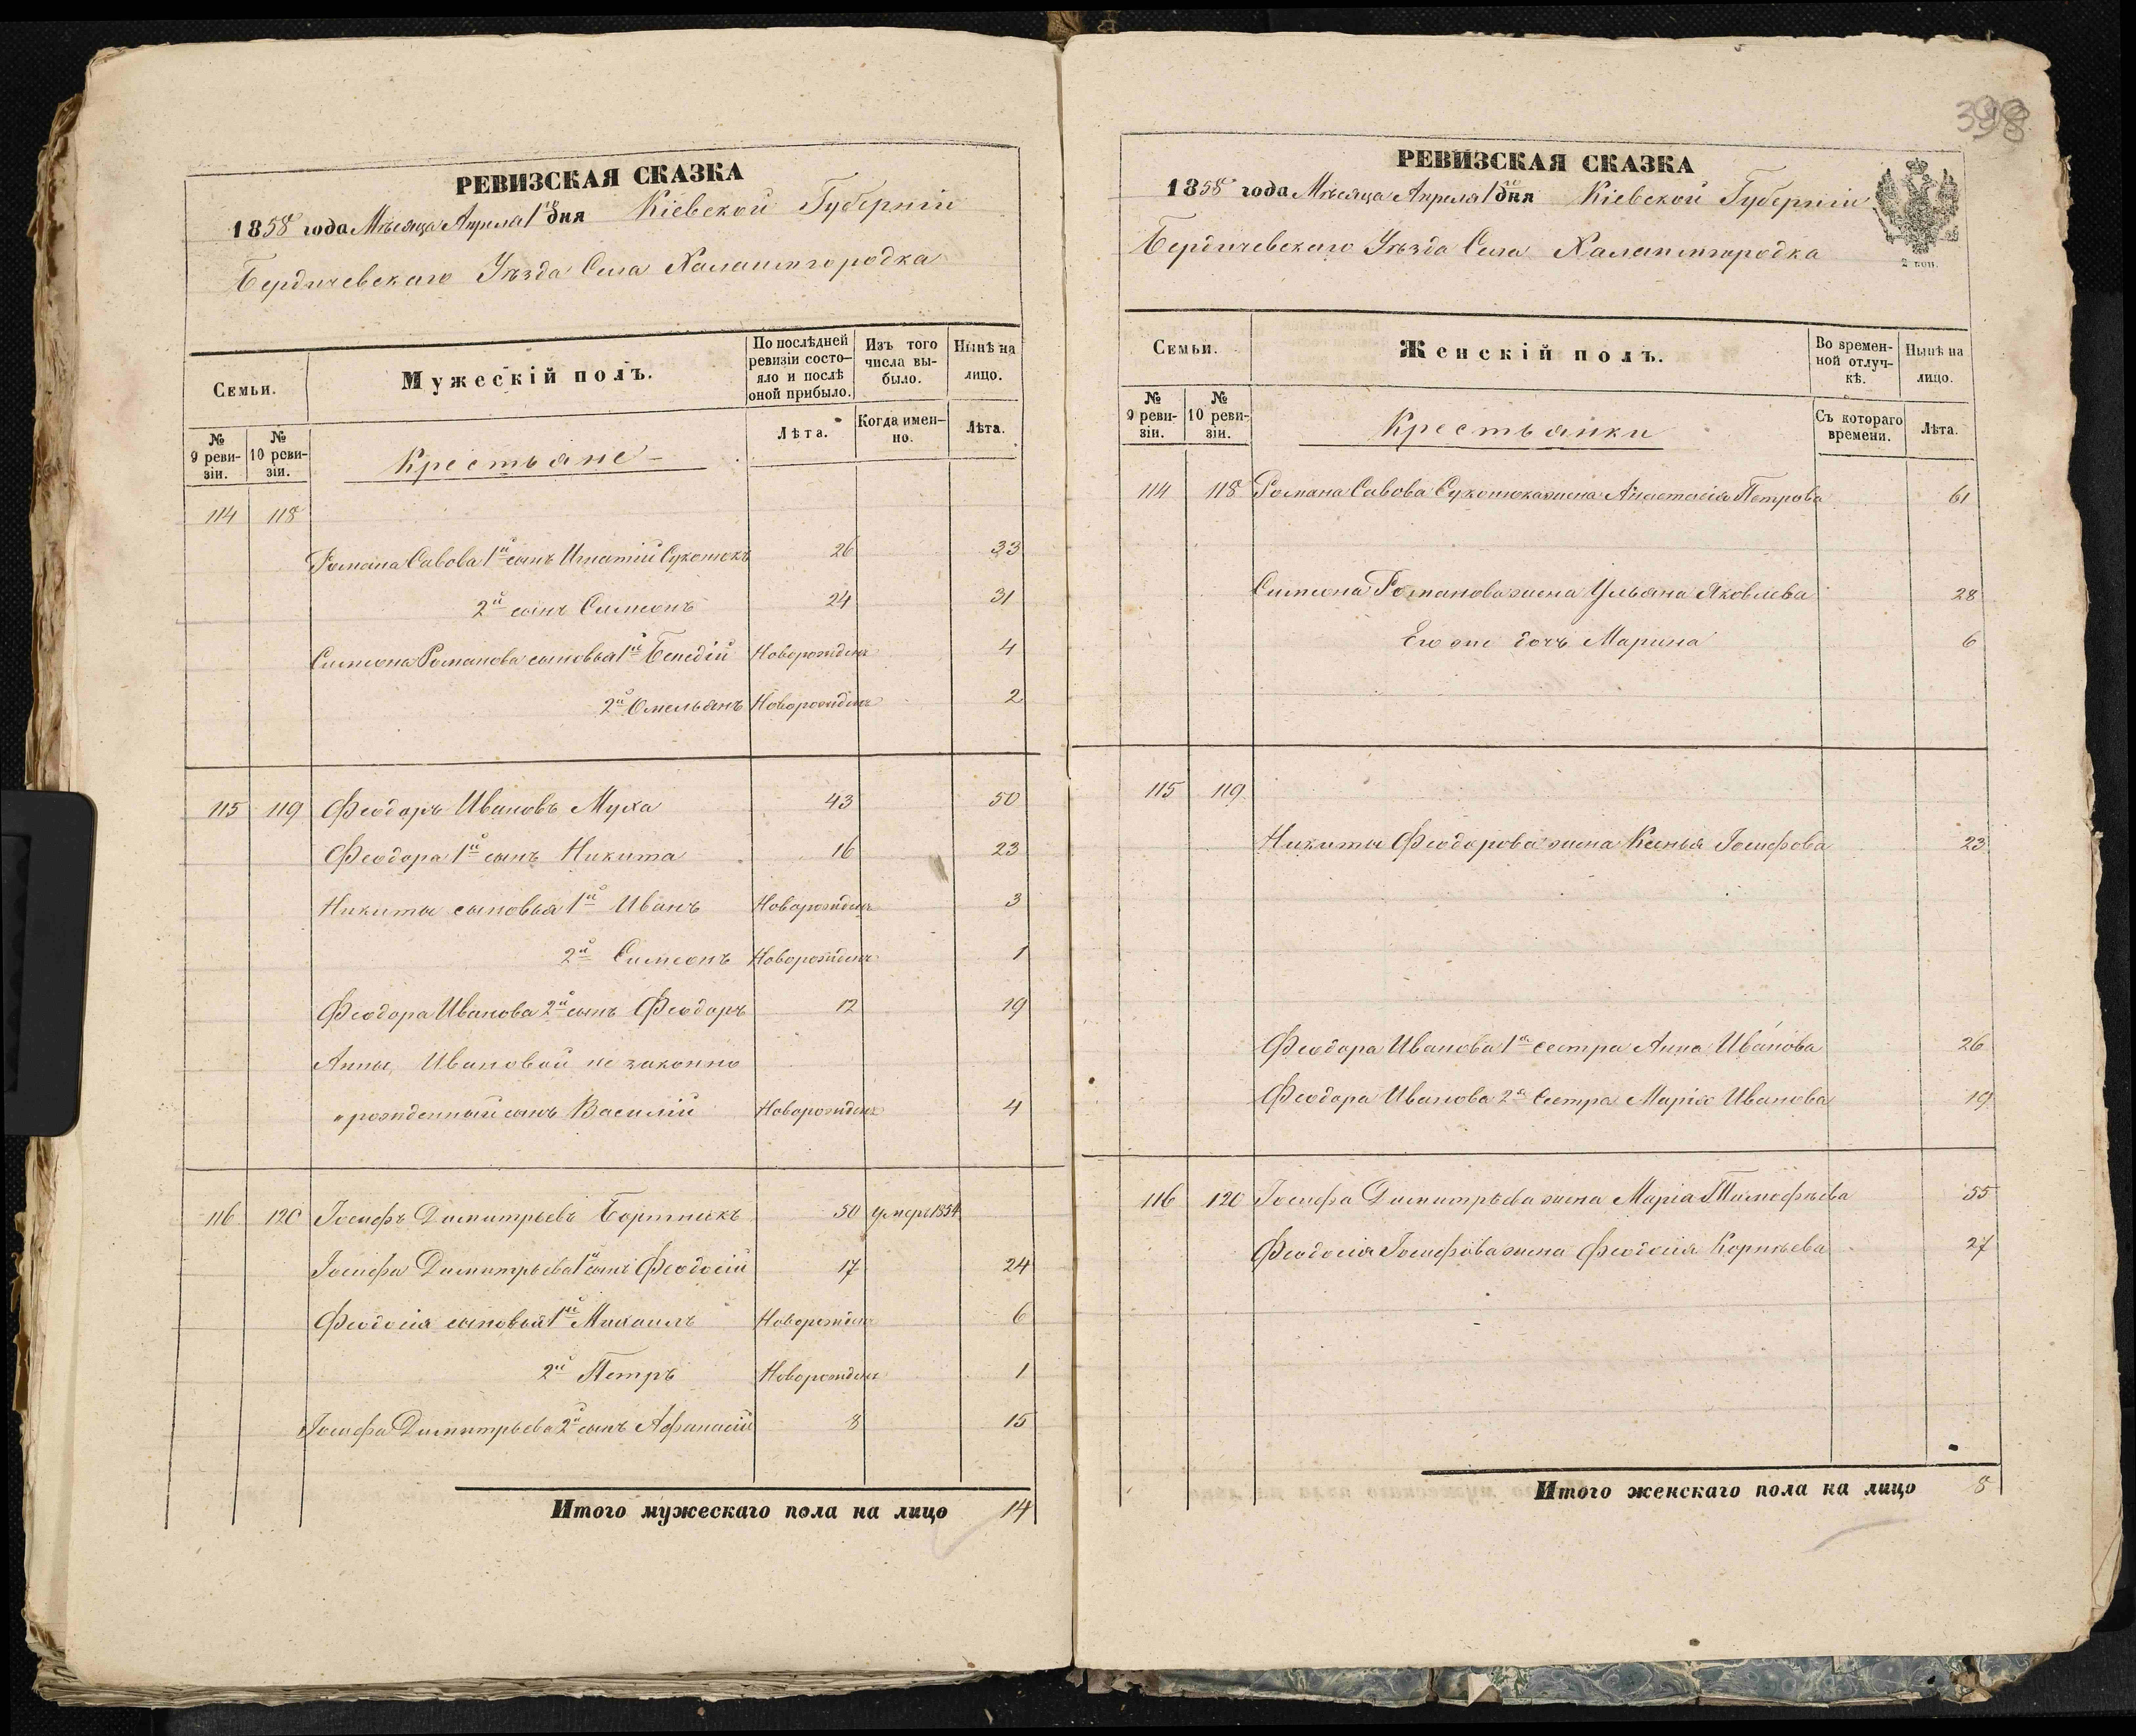 РЕВИЗСКАЯ СКАЗКА
1858 года Мѣсяца Апреля 1го дня Кіевской Губерніи
Бердичевскаго Уѣзда Села Халаимгородка
Семьи.
Мужескій полъ.
По послѣдней ревизіи состо-
яло и послѣ
оной прибыло.
Изъ того
числа вы-
было.
Нынѣ на
лицо.
№
9 реви-
зіи.
№
10 реви-
зіи.
Крестьяне
Лѣта.
Когда имен-
но.
Лѣта.
114 118
Романа Савова 1й сынъ Игнатій Сукотюкъ 26 33
2й сынъ Симеонъ 24 31
Симеона Романова сыновья 1й Бенедій Новорожденъ 4
2й Омельянъ Новорожденъ 2
115 119 Феодоръ Ивановъ Муха 43 50
Феодора 1й сынъ Никита 16 23
Никиты сыновья 1й Иванъ Новорожденъ 3
2й Симеонъ Новорожденъ 1
Феодора Иванова 2й сынъ Феодоръ 12 19
Анны Ивановой не законно
рожденный сынъ Василій Новорожденъ 4
116 120 Іосифъ Димитрьевъ Бортникъ 50 умеръ 1854
Іосифа Димитрьева 1й сынъ Феодосій 17 24
Феодосія сыновья 1й Михаилъ Новорожденъ 6
2й Петръ Новорожденъ 1
Іосифа Димитрьева 2й сынъ Афанасій 8 15
Итого мужескаго пола на лицо 14
398
РЕВИЗСКАЯ СКАЗКА
1858 года Мѣсяца Апреля 1го дня Кіевской Губерніи
Бердичевскаго Уѣзда Села Халаимгородка
2 коп.
Семьи.
Женскій полъ.
Во времен-
ной отлуч-
кѣ.
Нынѣ на
лицо.
№
9 реви-
зіи.
№
10 реви-
зіи.
Крестьянки
Съ котораго
времени.
Лѣта.
114 118 Романа Савова Сукотюка жена Анастасія Петрова 61
Симеона Романова жена Ульяна Яковлева 28
Его же дочь Марина 6
115 119
Никиты Феодорова жена Ксенья Іосифова 23
Феодора Иванова 1я сестра Анна Иванова 26
Феодора Иванова 2я Сестра Марія Иванова 19
116 120 Іосифа Димитрѣева жена Марія Тимофѣева 55
Феодосія Іосифова жена Феодосія Корнѣева 27
Итого женскаго пола на лицо 8